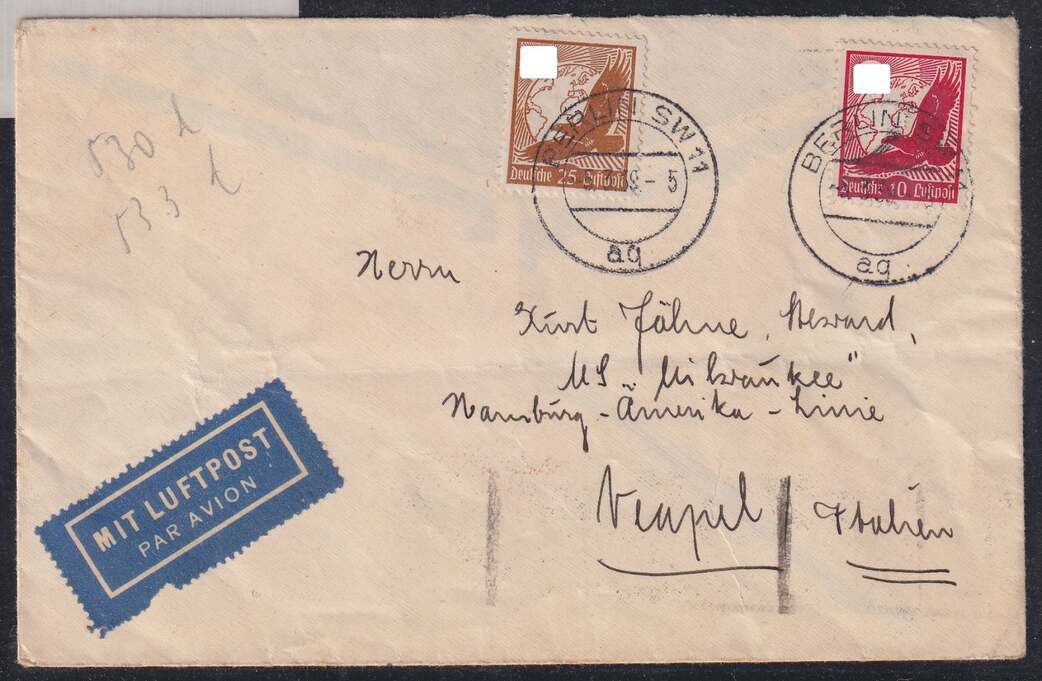 530 d
533 d
Deutsche 25 Luftpost
BERLIN SW 11
- 5
aq
Deutsche 10 Luftpost
BERLIN
aq
Herrn
Kurt Jähne, Steward,
MS „Milwaukee"
Hamburg-Amerika-Linie
Neapel / Italien
MIT LUFTPOST
PAR AVION